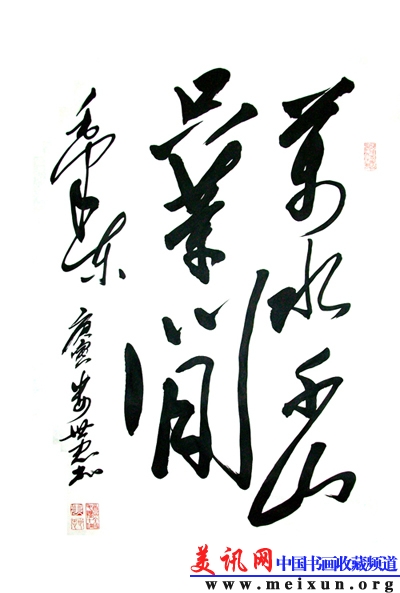 萬水千山
只等閒
毛泽东
庚寅
美讯网中国书画收藏频道
www.meixun.org